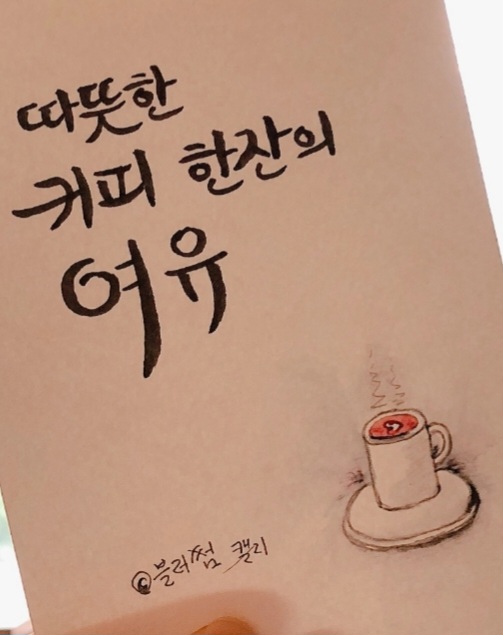 따뜻한
커피 한잔의
여유
©블러썸 캘리